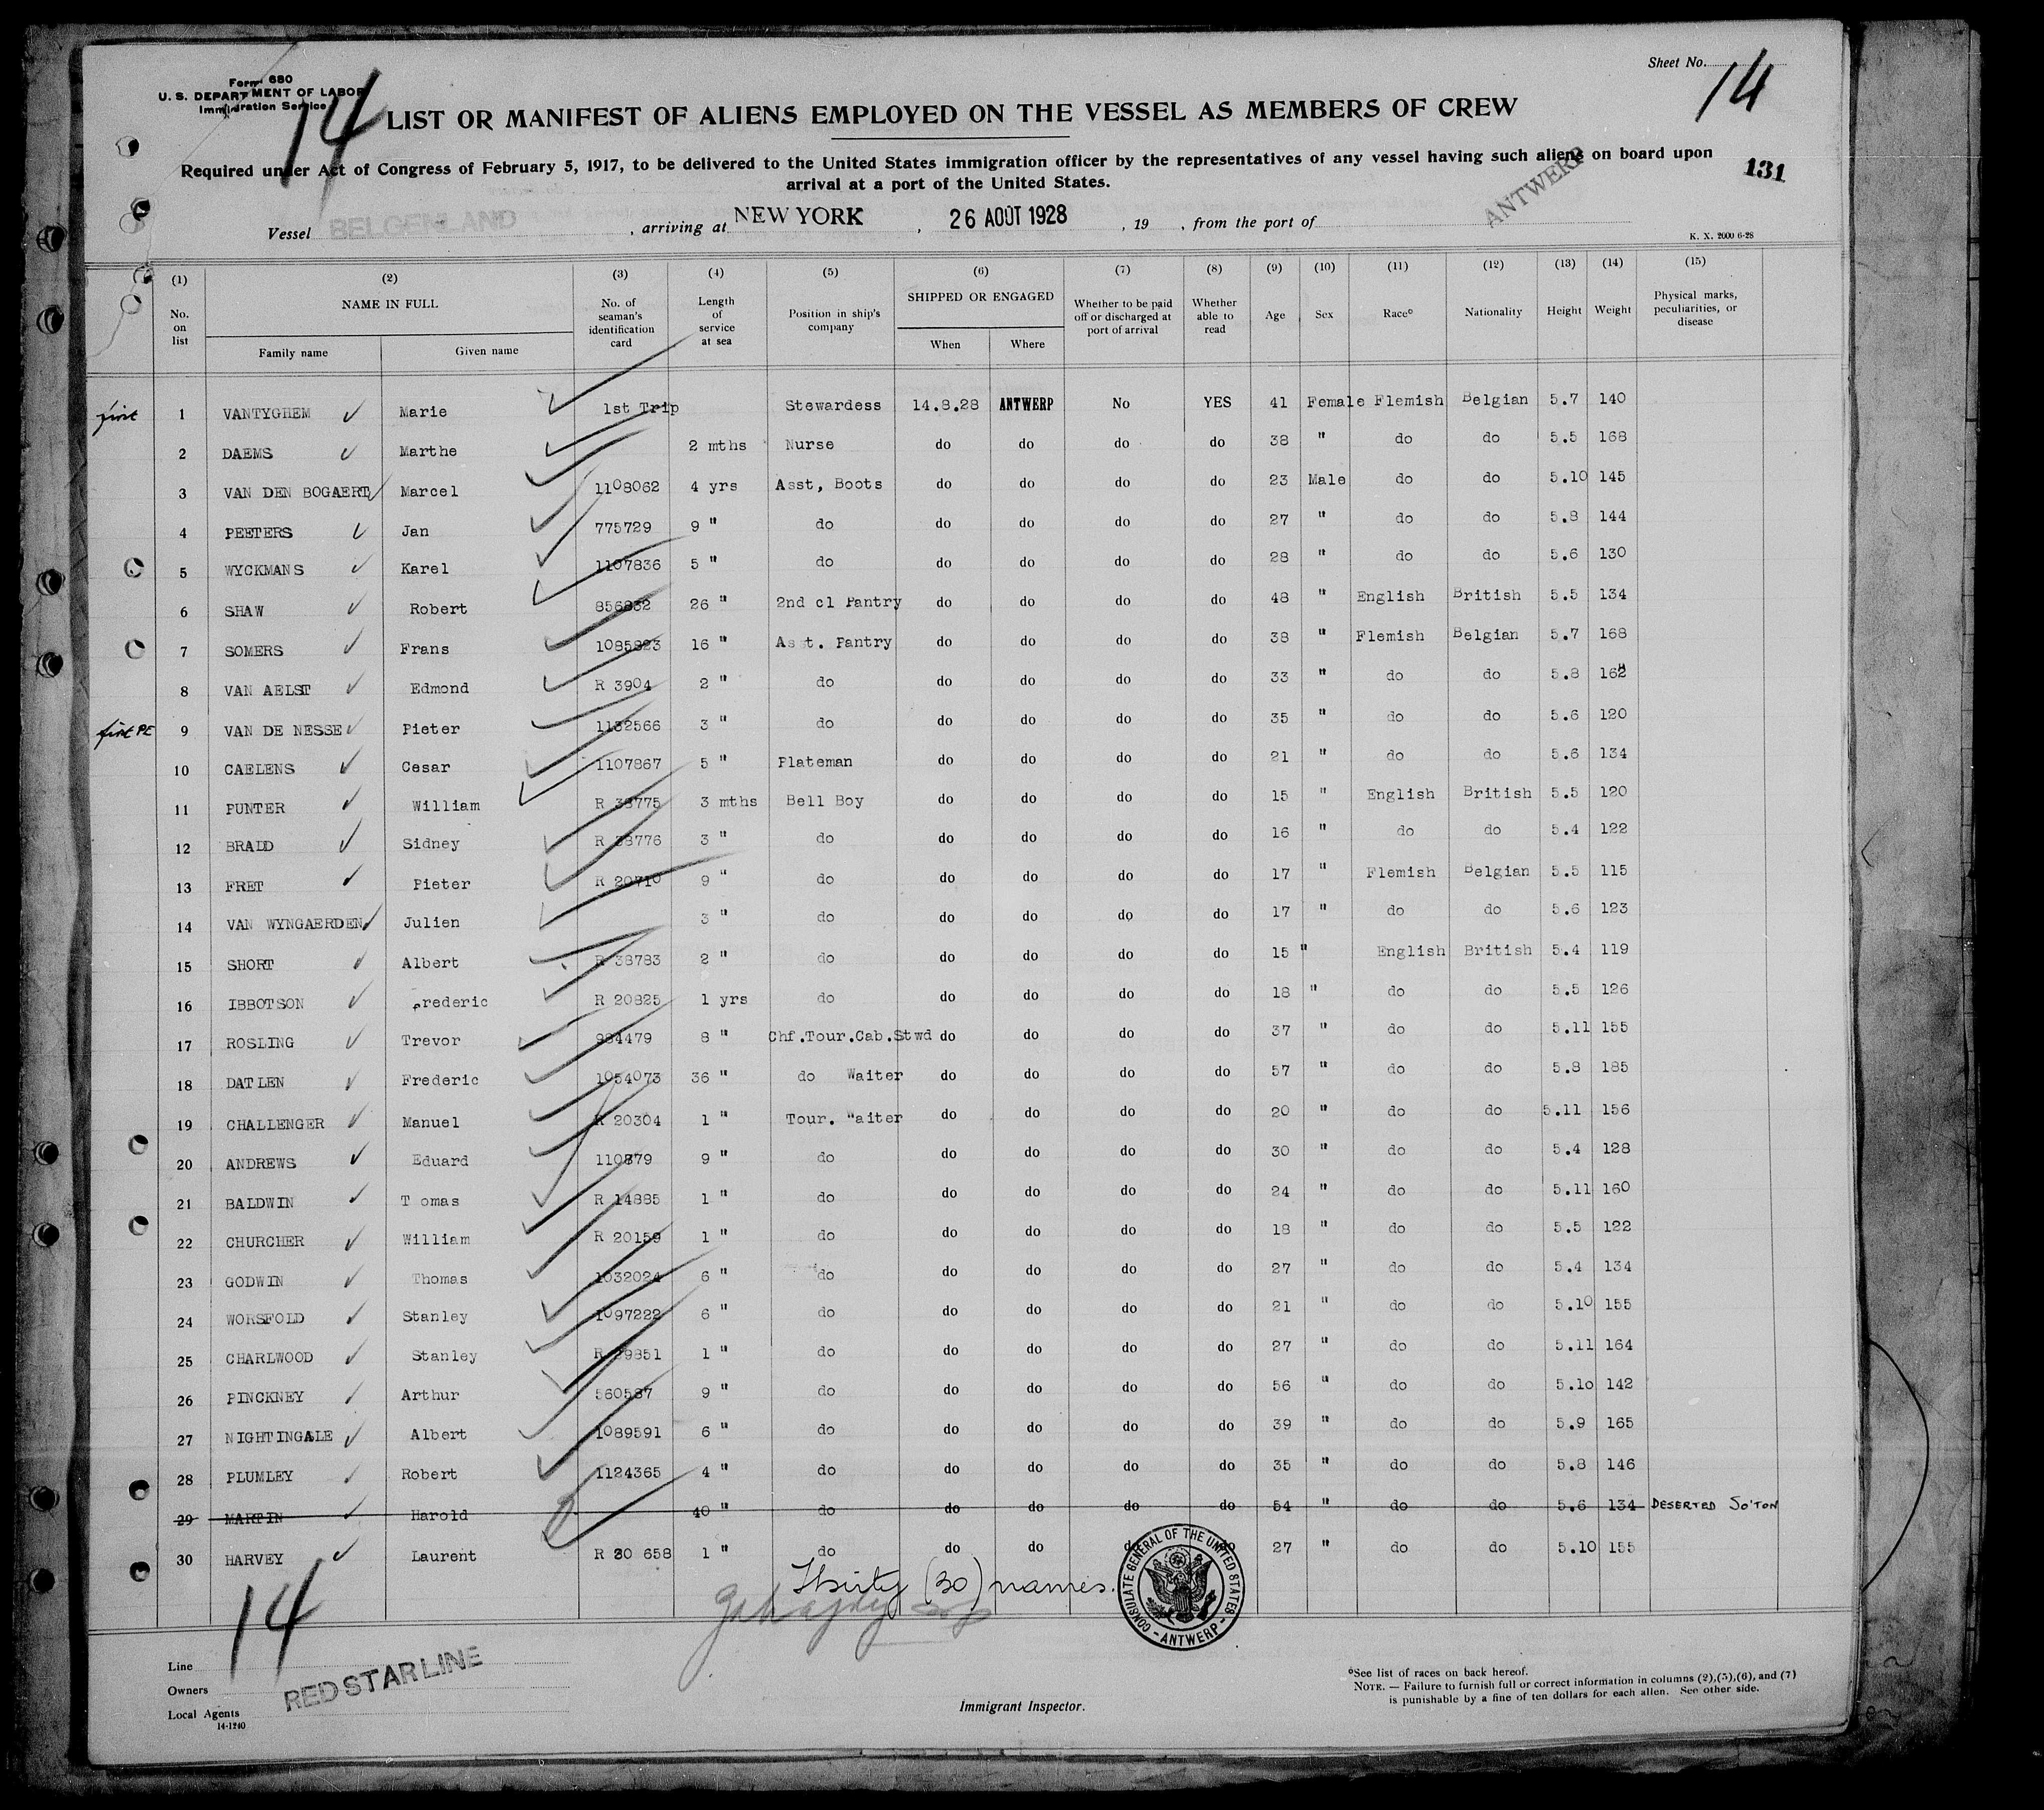 Form 680
U. S. DEPARTMENT OF LABOR
Immigration Service
14
Sheet No. 14
LIST OR MANIFEST OF ALIENS EMPLOYED ON THE VESSEL AS MEMBERS OF CREW
Required under Act of Congress of February 5, 1917, to be delivered to the United States immigration officer by the representatives of any vessel having such aliens on board upon
arrival at a port of the United States.
131
Vessel BELGENLAND, arriving at NEW YORK, 26 AOÛT 1928, 19 , from the port of ANTWERP
K. X. 2000 6-28
(1) (2) (3) (4) (5) (6) (7) (8) (9) (10) (11) (12) (13) (14) (15)
No. on list NAME IN FULL Family name Given name No. of seaman's identification card Length of service at sea Position in ship's company SHIPPED OR ENGAGED When Where Whether to be paid off or discharged at port of arrival Whether able to read Age Sex Race° Nationality Height Weight Physical marks, peculiarities, or disease
first 1 VANTYGHEM Marie 1st Trip Stewardess 14.8.28 ANTWERP No YES 41 Female Flemish Belgian 5.7 140
2 DAEMS Marthe 2 mths Nurse do do do do 38 " do do 5.5 168
3 VAN DEN BOGAERT Marcel 1108062 4 yrs Asst, Boots do do do do 23 Male do do 5.10 145
4 PEETERS Jan 775729 9 " do do do do do 27 " do do 5.8 144
5 WYCKMANS Karel 1107836 5 " do do do do do 28 " do do 5.6 130
6 SHAW Robert 856832 26 " 2nd cl Pantry do do do do 48 " English British 5.5 134
7 SOMERS Frans 1085823 16 " Asst. Pantry do do do do 38 " Flemish Belgian 5.7 168
8 VAN AELST Edmond R 3904 2 " do do do do do 33 " do do 5.8 162
first PE 9 VAN DE NESSE Pieter 1132566 3 " do do do do do 35 " do do 5.6 120
10 CAELENS Cesar 1107867 5 " Plateman do do do do 21 " do do 5.6 134
11 PUNTER William R 38775 3 mths Bell Boy do do do do 15 " English British 5.5 120
12 BRADD Sidney R 38776 3 " do do do do do 16 " do do 5.4 122
13 FRET Pieter R 20710 9 " do do do do do 17 " Flemish Belgian 5.5 115
14 VAN WYNGAERDEN Julien 3 " do do do do do 17 " do do 5.6 123
15 SHORT Albert R 38783 2 " do do do do do 15 " English British 5.4 119
16 IBBOTSON Frederic R 20825 1 yrs do do do do do 18 " do do 5.5 126
17 ROSLING Trevor 984479 8 " Chf.Tour.Cab.Stwd do do do do 37 " do do 5.11 155
18 DATLEN Frederic 1054073 36 " do Waiter do do do do 57 " do do 5.8 185
19 CHALLENGER Manuel R 20304 1 " Tour. Waiter do do do do 20 " do do 5.11 156
20 ANDREWS Eduard 110879 9 " do do do do do 30 " do do 5.4 128
21 BALDWIN T omas R 14885 1 " do do do do do 24 " do do 5.11 160
22 CHURCHER William R 20159 1 " do do do do do 18 " do do 5.5 122
23 GODWIN Thomas 1032024 6 " do do do do do 27 " do do 5.4 134
24 WORSFOLD Stanley 1097222 6 " do do do do do 21 " do do 5.10 155
25 CHARLWOOD Stanley 1 " do do do do do 27 " do do 5.11 164
26 PINCKNEY Arthur 560587 9 " do do do do do 56 " do do 5.10 142
27 NIGHTINGALE Albert 1089591 6 " do do do do do 39 " do do 5.9 165
28 PLUMLEY Robert 1124365 4 " do do do do do 35 " do do 5.8 146
29 MARTIN Harold 40 " do do do do do 54 " do do 5.6 134 DESERTED SO'TON
30 HARVEY Laurent R 20 658 1 " do do do do do 27 " do do 5.10 155
Thirty (30) names.
CONSULATE GENERAL OF THE UNITED STATES - ANTWERP -
14
Line
Owners
Local Agents
RED STAR LINE
14-1240
Immigrant Inspector.
°See list of races on back hereof.
NOTE. — Failure to furnish full or correct information in columns (2),(5),(6), and (7)
is punishable by a fine of ten dollars for each alien. See other side.